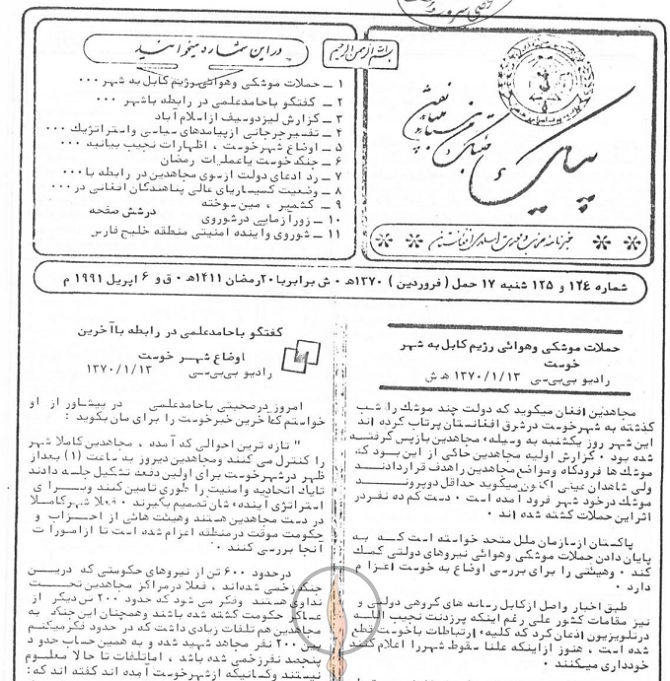 در این شماره میخوانید
۱ ــ حملات موشکی وهوائی رژیم کابل به شهر ۰۰۰
۲ ــ گفتگو باحامدعلمی در رابطه باشهر ۰۰۰
۳ ــ گزارش لیزدوسیف ازاسلام آباد
۴ ــ تفسیرجرجانی ازپیامدهای سیاسی واستراتژیک ۰۰۰
۵ ــ اوضاع شهرخوست ، اظهارات نجیب بیانیه ۰۰۰
۶ ــ جنگ خوست یاعملیات رمضان
۷ ــ رد ادعای دولت ازسوی مجاهدین در رابطه با ۰۰۰
۸ ــ وضعیت کمیساریای عالی پناهندگان افغانی در ۰۰۰
۹ ــ کشمیر ، مین سوخته
۱۰ ــ زورآزمایی درشوروی
درشش صفحه
۱۱ ــ شوروی واینده امنیتی منطقه خلیج فارس
شماره ۱۲۴ و ۱۲۵ شنبه ۱۷ حمل ( فروردین ) ۱۳۷۰ه‍ ۰ ش برابربا ۲۰ رمضان ۱۴۱۱ه‍ ۰ ق و ۶ اپریل ۱۹۹۱ م
حملات موشکی وهوائی رژیم کابل به شهر
خوست
رادیو بی‌بی‌سی ۱۳۷۰/۱/۱۳ ه‍ ش
مجاهدین افغان میگوید که دولت چند موشک را شب
گذشته به شهرخوست درشرق افغانستان پرتاب کرده اند
این شهر روز یکشنبه به وسیله مجاهدین بازپس گرفته
شده بود ۰ گزارش اولیه مجاهدین حاکی از این بود که
موشک ها فرودگاه ومواضع مجاهدین راهدف قراردادند
ولی شاهدان عینی اکنون میگوید حداقل دوپروند
موشک درخود شهر فرود آمده است ۰ دست کم ده نفردر
اثراین حملات کشته شده اند ۰
پاکستان ازسازمان ملل متحد خواسته است که به
پایان دادن حملات موشکی وهوائی نیروهای دولتی کمک
کند ۰ وهیئتی را برای بررسی اوضاع به خوست اعزام
دارد ۰
طبق اخبار واصل ازکابل رسانه های گروهی دولتی و
نیز مقامات کشور علی رغم اینکه پرزدنت نجیب الله
درتلویزیون اذعان کرد که کلیه ارتباطات باخوست قطع
شده است ، هنوز ازاینکه علنا سقوط شهررا اعلام کنند
خودداری میکنند ۰
گفتگو باحامدعلمی در رابطه باآخرین
اوضاع شهر خوست
رادیو بی‌بی‌سی ۱۳۷۰/۱/۱۳
امروز درصحبتی باحامدعلمی در پیشاور از او
خواستم که آخرین خبرخوست را برای مان بگوید :
" تازه ترین احوالی که آمده ، مجاهدین کاملا شهر
را کنترل می کنند ومجاهدین دیروز به ساعت (۱) بعداز
ظهر درشهرخوست برای اولین دفعه تشکیل جلسه دادند
تایک اتحادیه وامنیت را طوری تامین کنند وبرای
استراتژی اینده شان تصمیم بگیرند ۰ فعلا شهر کاملا
در دست مجاهدین هستند وهیئت هائی از احزاب و
حکومت موقت درمنطقه اعزام شده است تا ازامورات
آنجا بررسی کنند ۰
درحدود ۶۰۰ تن از نیروهای حکومتی که درین
جنگ زخمی شده‌اند ، فعلا درمراکز مجاهدین تحت
تداوی هستند وفکر می شود که حدود ۲۰۰ تن دیگر از
عساکر حکومت کشته شده باشند وهمچنان این جنگ به
مجاهدین هم تلفات زیادی داشت که در حدود فکر میکنم
بین ۲۰۰ نفر مجاهد شهید شده و به همین حساب حدود
پنجصد نفرزخمی شده باشد ، اماتلفات تا حالا معلوم
نیستند وکسانیکه ازشهرخوست آمده اند گفته اند که :